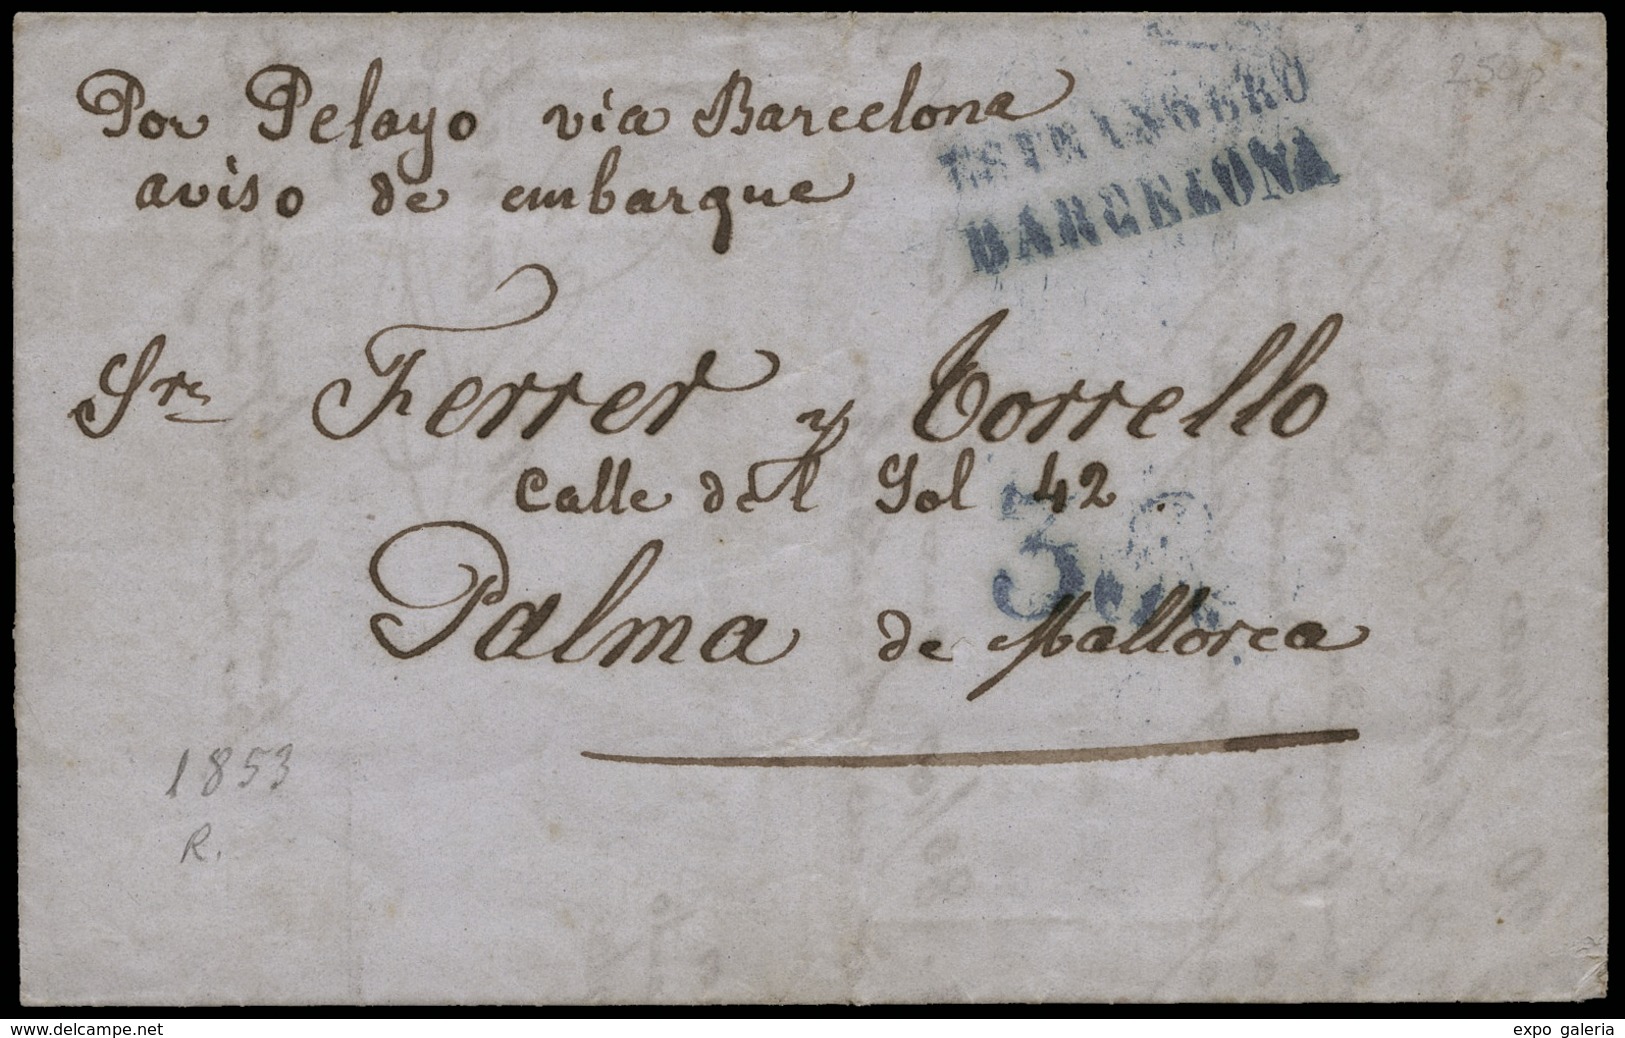 250p
Por Pelayo via Barcelona
aviso de embarque
ESTRANGERO
BARCELONA
Sres Ferrer y Torrello
Calle del Sol 42.
3
Palma de Mallorca
1853
R.
www.delcampe.net
expo galeria